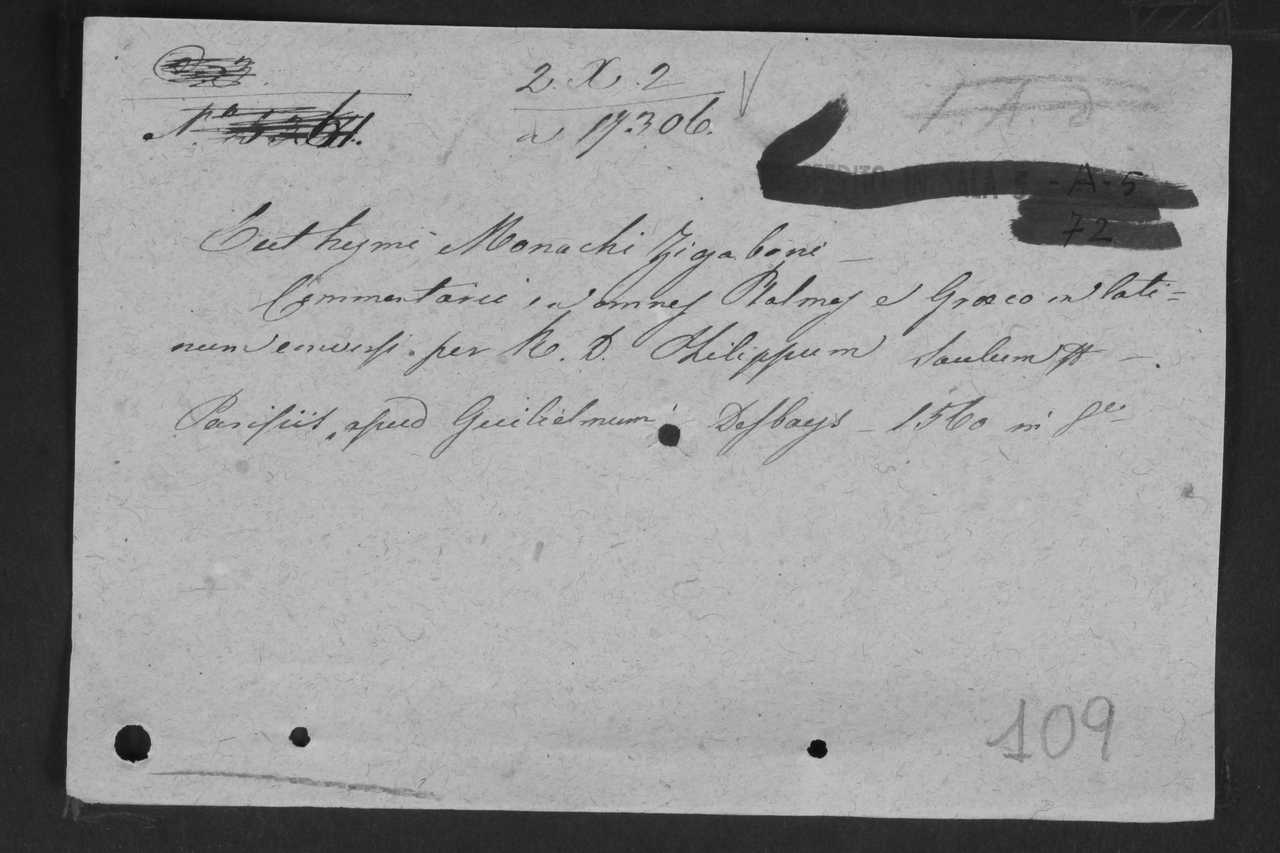 2. X. 2
a 17.306.
SPEDITO IN SALA 5 - A - 5
72
Euthymi Monachi Zigaboni —
Commentarii in omnes Psalmos e Græco in lati=
num conversi. per R. D. Philippum Saulum —.
Parisiis, apud Guilielmum Desboys — 1560 in 8º
109